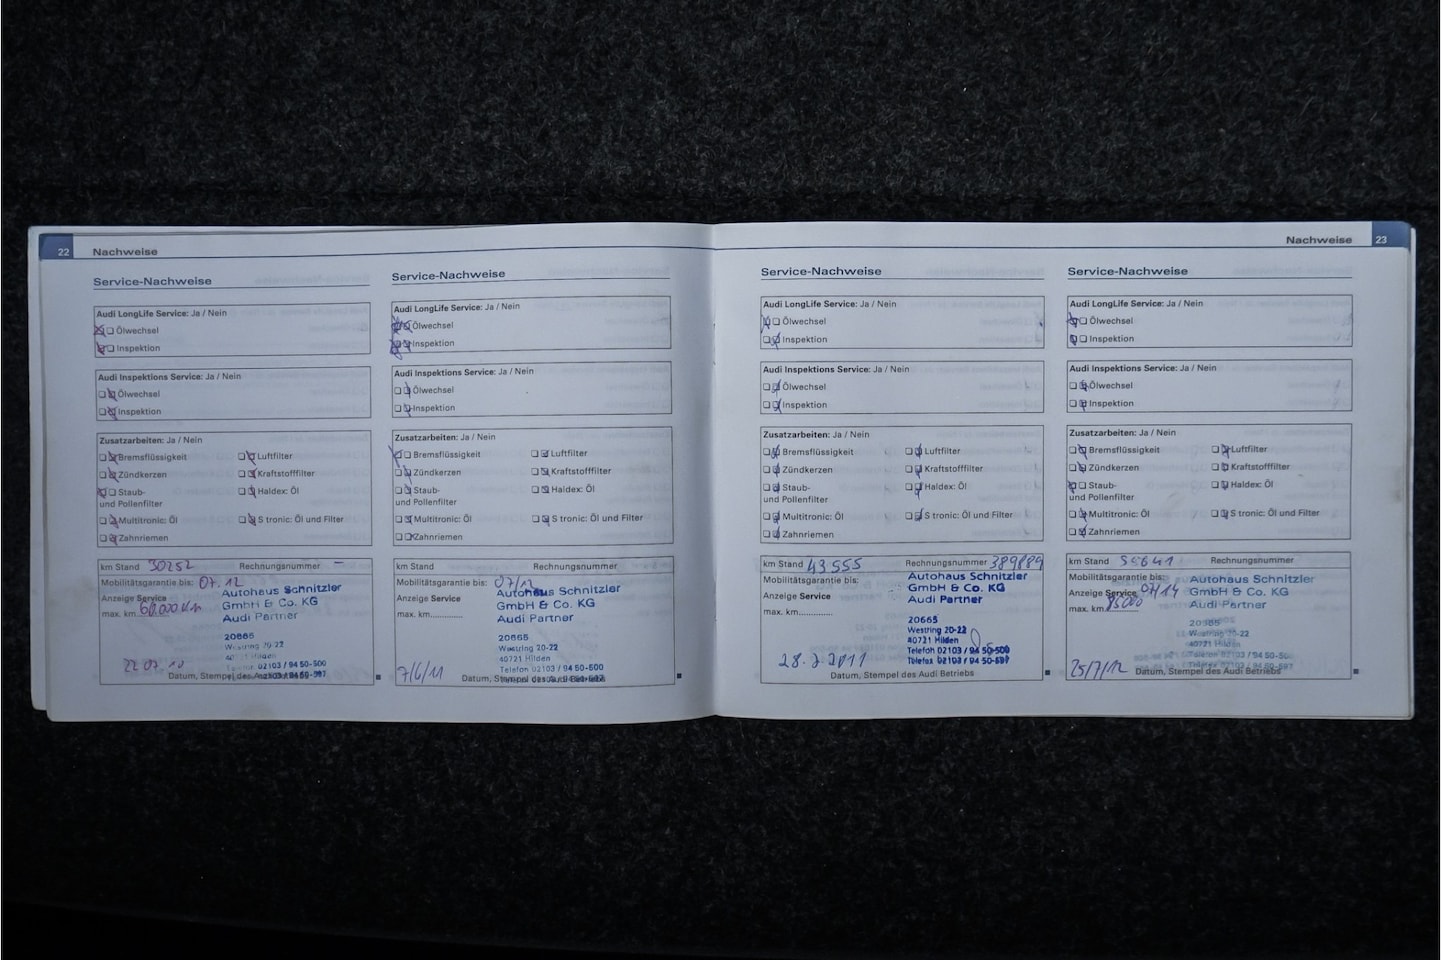 22 Nachweise
Service-Nachweise
Audi LongLife Service: Ja / Nein
Ölwechsel
Inspektion
Audi Inspektions Service: Ja / Nein
Ölwechsel
Inspektion
Zusatzarbeiten: Ja / Nein
Bremsflüssigkeit Luftfilter
Zündkerzen Kraftstofffilter
Staub- Haldex: Öl
und Pollenfilter
Multitronic: Öl S tronic: Öl und Filter
Zahnriemen
km Stand 30252 Rechnungsnummer -
Mobilitätsgarantie bis: 07.12
Anzeige Service
max. km 60.000 km
Autohaus Schnitzler
GmbH & Co. KG
Audi Partner
20665
Westring 20-22
22.07.10
Datum, Stempel des Audi Betriebs
Service-Nachweise
Audi LongLife Service: Ja / Nein
Ölwechsel
Inspektion
Audi Inspektions Service: Ja / Nein
Ölwechsel
Inspektion
Zusatzarbeiten: Ja / Nein
Bremsflüssigkeit Luftfilter
Zündkerzen Kraftstofffilter
Staub- Haldex: Öl
und Pollenfilter
Multitronic: Öl S tronic: Öl und Filter
Zahnriemen
km Stand Rechnungsnummer
Mobilitätsgarantie bis: 07/12
Anzeige Service
max. km..............
Autohaus Schnitzler
GmbH & Co. KG
Audi Partner
20665
Westring 20-22
40721 Hilden
Telefon 02103 / 94 50-500
7/6/11
Datum, Stempel des Audi Betriebs
Nachweise 23
Service-Nachweise
Audi LongLife Service: Ja / Nein
Ölwechsel
Inspektion
Audi Inspektions Service: Ja / Nein
Ölwechsel
Inspektion
Zusatzarbeiten: Ja / Nein
Bremsflüssigkeit Luftfilter
Zündkerzen Kraftstofffilter
Staub- Haldex: Öl
und Pollenfilter
Multitronic: Öl S tronic: Öl und Filter
Zahnriemen
km Stand 43555 Rechnungsnummer 389889
Mobilitätsgarantie bis:
Anzeige Service
max. km..............
Autohaus Schnitzler
GmbH & Co. KG
Audi Partner
20665
Westring 20-22
40721 Hilden
Telefon 02103 / 94 50-500
Telefax 02103 / 94 50-597
28.7.2011
Datum, Stempel des Audi Betriebs
Service-Nachweise
Audi LongLife Service: Ja / Nein
Ölwechsel
Inspektion
Audi Inspektions Service: Ja / Nein
Ölwechsel
Inspektion
Zusatzarbeiten: Ja / Nein
Bremsflüssigkeit Luftfilter
Zündkerzen Kraftstofffilter
Staub- Haldex: Öl
und Pollenfilter
Multitronic: Öl S tronic: Öl und Filter
Zahnriemen
km Stand Rechnungsnummer
Mobilitätsgarantie bis:
Anzeige Service 07/14
max. km 85000
Autohaus Schnitzler
GmbH & Co. KG
Audi Partner
20665
Westring 20-22
40721 Hilden
25/7/12
Datum, Stempel des Audi Betriebs